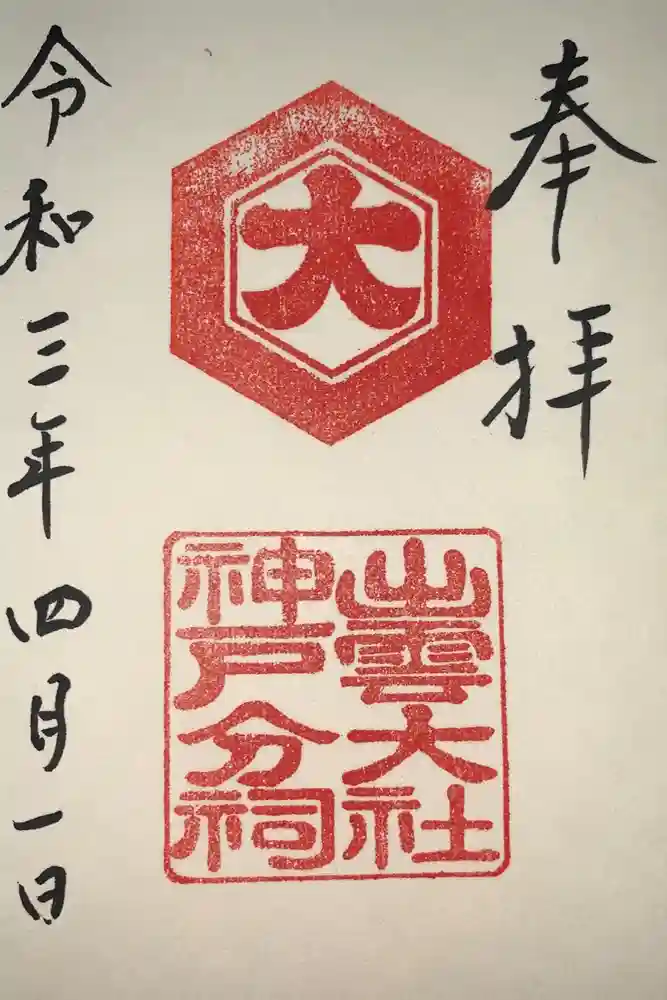 奉拝
大
出雲大社
神戸分祠
令和三年四月一日